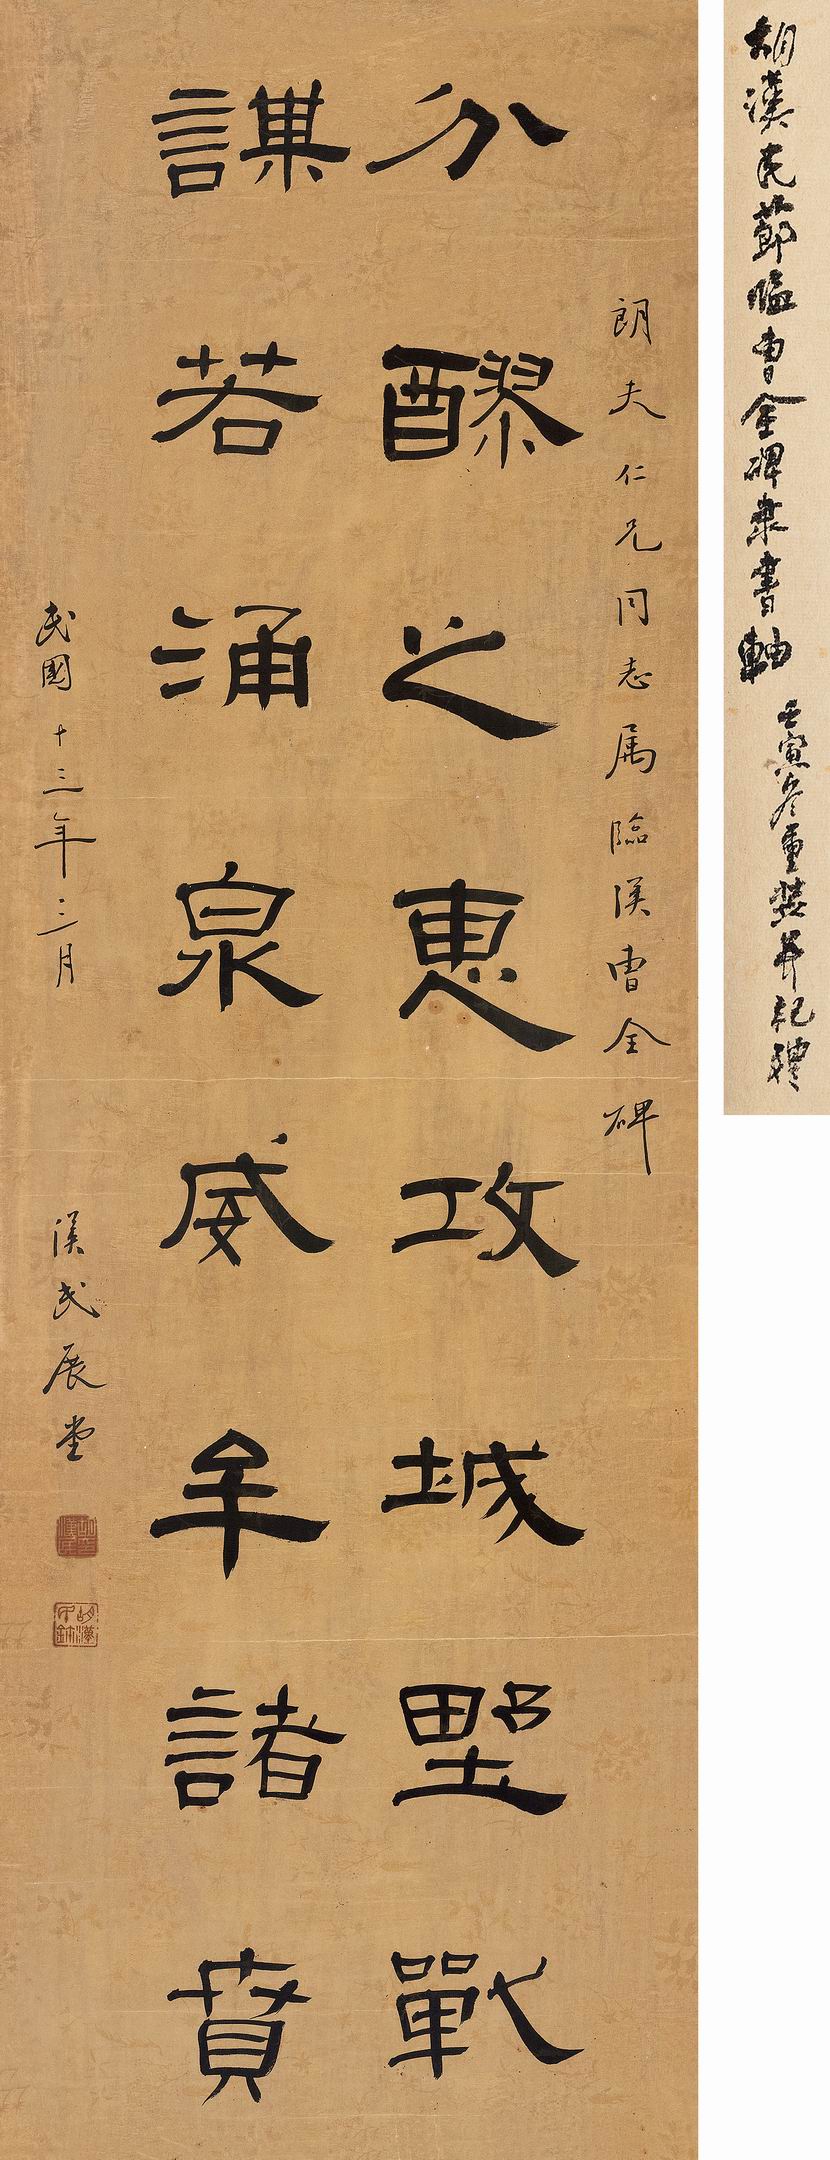 胡漢民節臨曹全碑隸書軸
壬寅冬重裝并記
朗夫仁兄同志属臨漢曹全碑
分醪之惠攻城墅戰
謀若涌泉威牟諸賁
民國十三年三月
漢民展堂